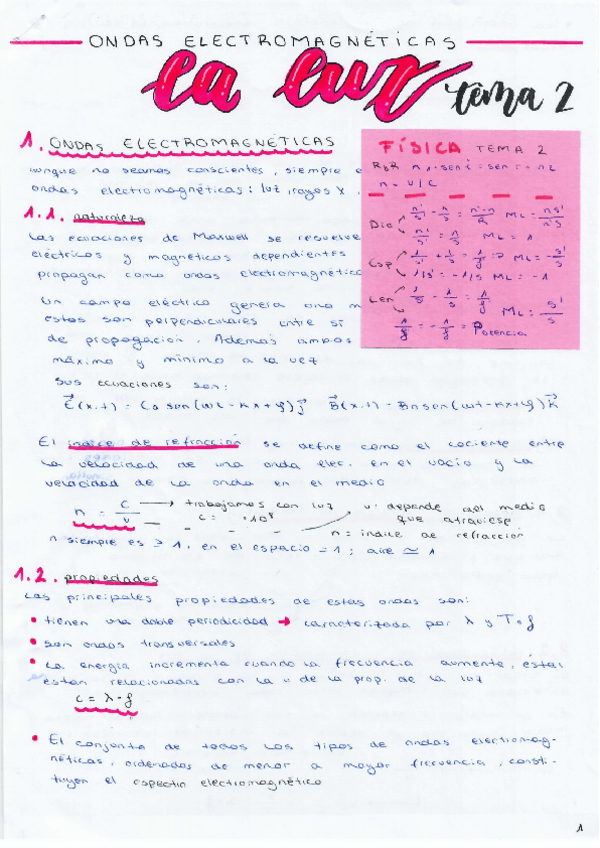 ONDAS ELECTROMAGNÉTICAS
La luz tema 2
1. ONDAS ELECTROMAGNÉTICAS
aunque no seamos conscientes, siempre e
ondas electromagnéticas: luz, rayos X,
1.1. naturaleza
Las ecuaciones de Maxwell se resuelve
eléctricos y magnéticos dependientes
propagan como ondas electromagnétic
Un campo eléctrico genera uno m
estos son perpendiculares entre sí
de propagación. Además ambos
máximo y mínimo a la vez
FÍSICA TEMA 2
n = v/c
Dio
n'/s' - n/s = n'-n/R ML = ns'/n's
n'/s' = n/s ML = 1
Esp
1/s' + 1/s = 1/f ML = -s'/s
1/s' = -1/s ML = -1
Len
1/s' - 1/s = 1/f' ML = s'/s
Potencia
Sus ecuaciones son:
E(x,t) = E0 sen(wt - kx + φ)j B(x,t) = B0 sen(wt - kx + φ)k
El indice de refracción se define como el cociente entre
la velocidad de una onda elec. en el vacío y la
velocidad de la onda en el medio
n = c/v → trabajamos con luz v: depende del medio
c = ·10⁸ que atraviese
n = indice de refracción
n siempre es ≥ 1, en el espacio = 1; aire ≃ 1
1.2. propiedades
Las principales propiedades de estas ondas son:
• tienen una doble periodicidad → caracterizada por λ y T o f
• son ondas transversales
• La energía incrementa cuando la frecuencia aumente, éstas
están relacionadas con la v de la prop. de la luz
c = λ · f
• El conjunto de todos los tipos de ondas electromag-
néticas, ordenadas de menor a mayor frecuencia, consti-
tuyen el espectro electromagnético
1